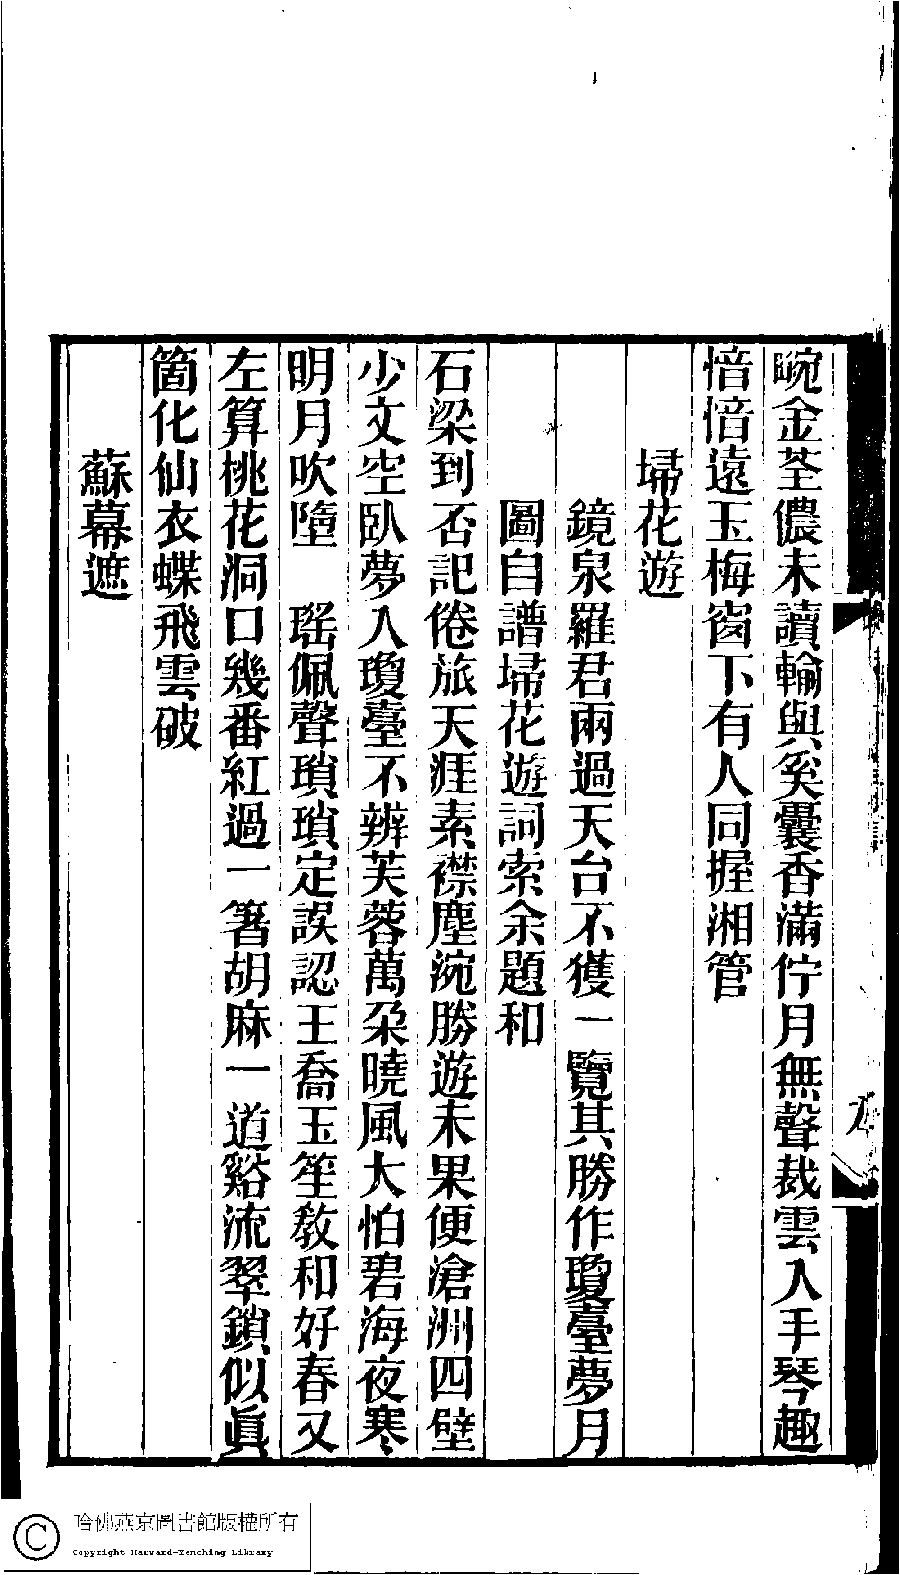 畹金荃儂未讀輸與奚囊香滿佇月無聲裁雲入手琴趣
愔愔遠玉梅窗下有人同握湘管
埽花遊
鏡泉羅君兩過天台不獲一覽其勝作瓊臺夢月
圖自譜埽花遊詞索余題和
石梁到否記倦旅天涯素襟塵涴勝遊未果便滄洲四壁
少文空臥夢入瓊臺不辨芙蓉萬朶曉風大怕碧海夜寒
明月吹墮　瑤佩聲瑣瑣定誤認王喬玉笙敎和好春又
左算桃花洞口幾番紅過一箸胡麻一道谿流翠鎖似眞
箇化仙衣蝶飛雲破
蘇幕遮
哈佛燕京圖書館版權所有
Copyright Harvard-Yenching Library